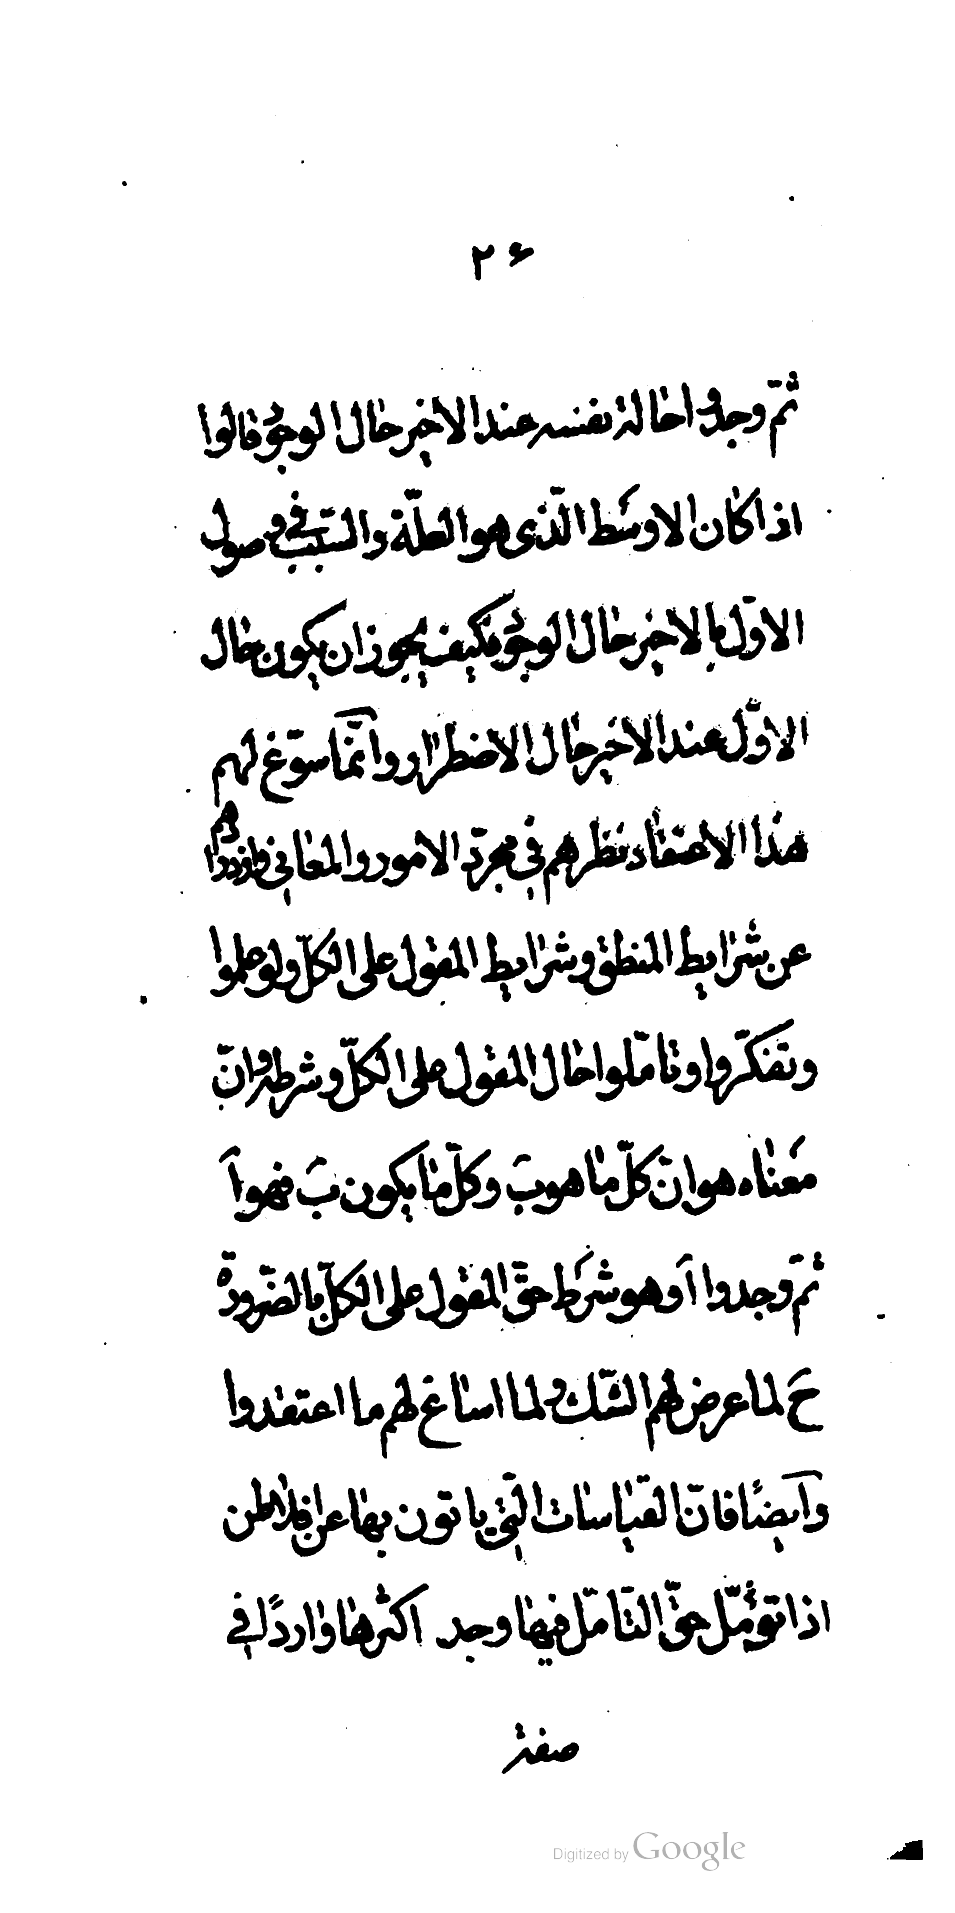 ۲۶
ثمّ وجدوا حاله بنفسه عند الاخير حال الوجود قالوا
اذا كان الاوسَط الّذى هو العلّة والسّبب فى وصول
الاوّل بالاخير حال الوجود فكيف يجوز ان يكون حال
الاوّل عند الاخير حال الاضطرار وانّما سوّغ لهم
هذا الاعتقاد نظرهم فى مجرّد الامور والمعانى وازورارهم
عن شرايط المنطق وشرايط المقول على الكلّ ولو علموا
وتفكّروا وتامّلوا حال المقول على الكلّ وشرطه وانّ
مَعناه هو انّ كلّ ما هو بَ وكلّ ما يكون بَ فهو اَ
ثمّ وجدوا اَ وهو شرَط حقّ المقول على الكلّ بالضّرورة
حَ لما عرض لهم الشّك ولما اساغ لهم ما اعتقدوا
وآيضًا فانّ القياسات الّتى ياتون بها عن افلاطن
اذا تؤمّل حقّ التّامّل فيها وجد اكثرها واردًا فى
صفة
Digitized by Google